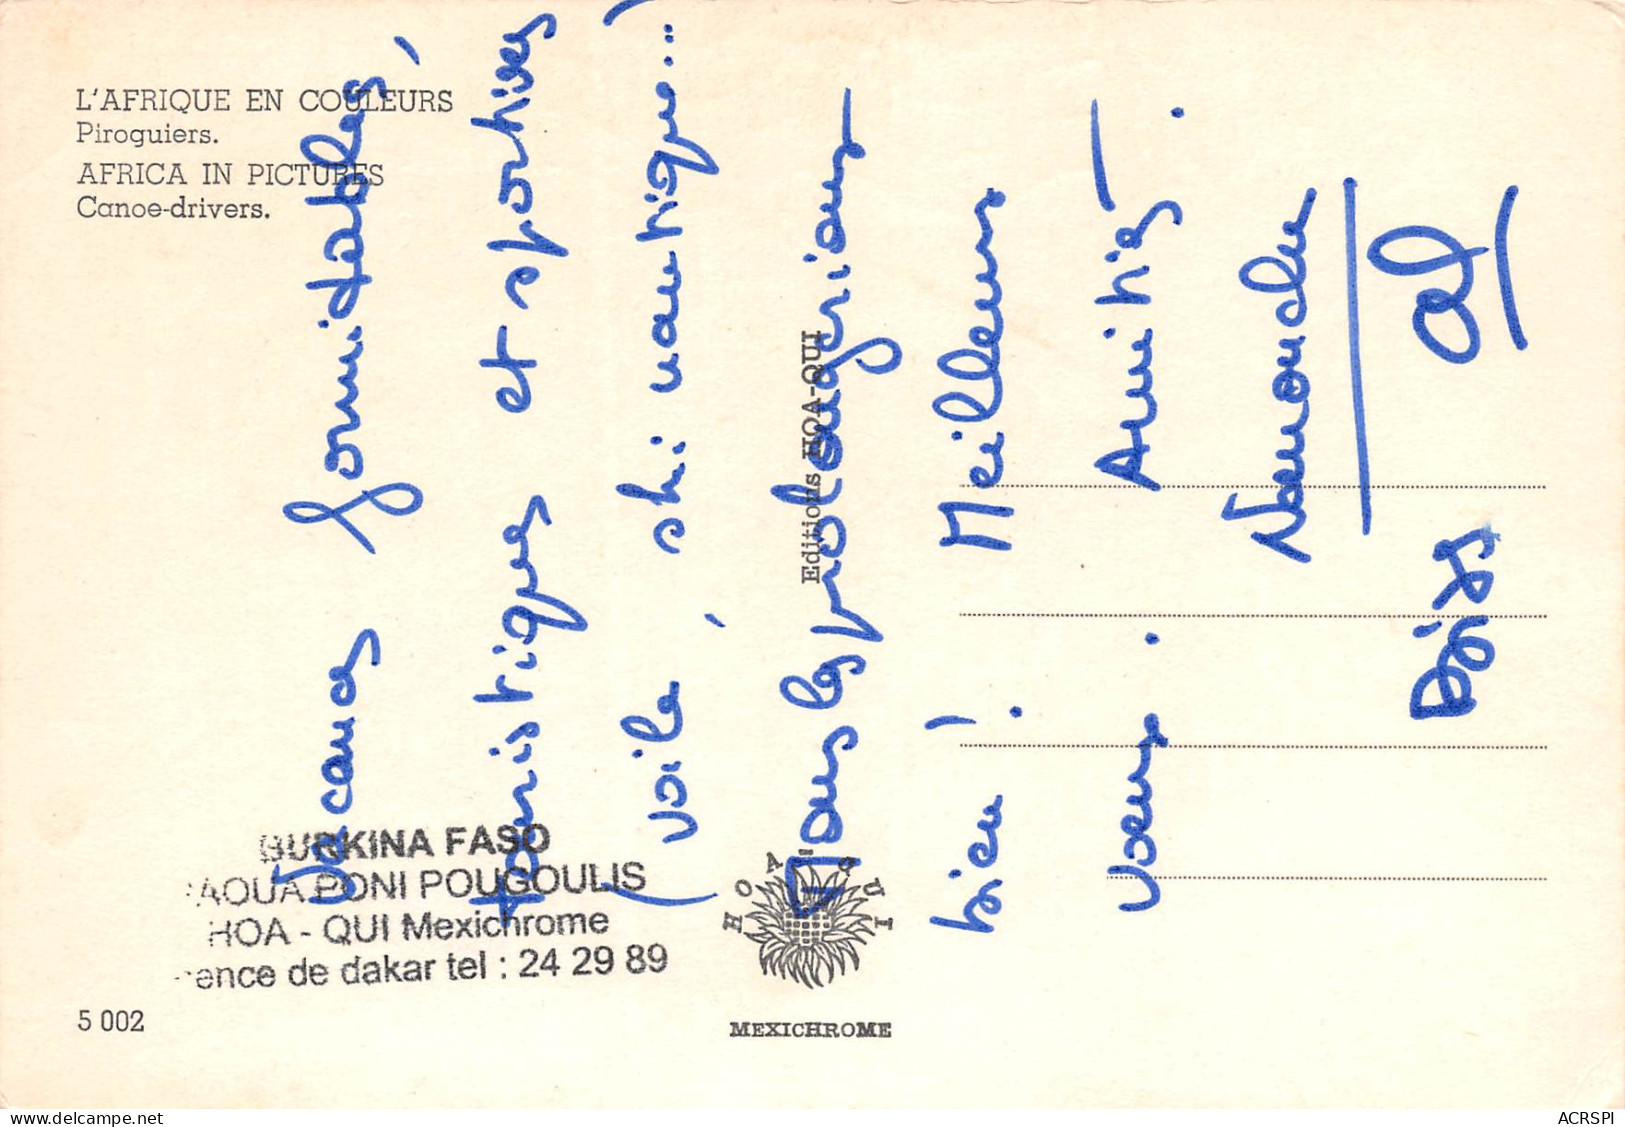 L'AFRIQUE EN COULEURS
Piroguiers.
AFRICA IN PICTURES
Canoe-drivers.
Vacances formidables,
touristiques et sportives
(voile, ski nautique...
Tous les prolongerions
bien! Meilleurs
voeux. Amitiés.
Bises
Editions HOA-QUI
HOA-QUI
MEXICHROME
BURKINA FASO
AQUA PONI POUGOULIS
HOA - QUI Mexichrome
ence de dakar tel : 24 29 89
5 002
ACRSPI